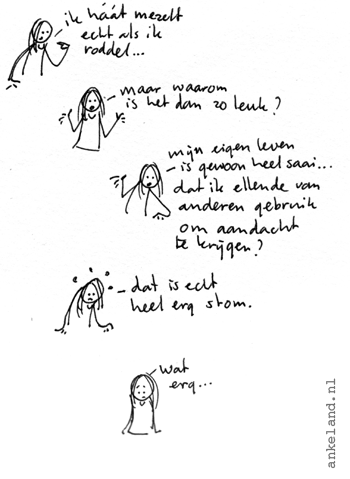 ik háát mezelf
echt als ik
roddel...
maar waarom
is het dan zo leuk?
mijn eigen leven
is gewoon heel saai...
dat ik ellende van
anderen gebruik
om aandacht
te krijgen?
dat is echt
heel erg stom.
wat
erg...
ankeland.nl